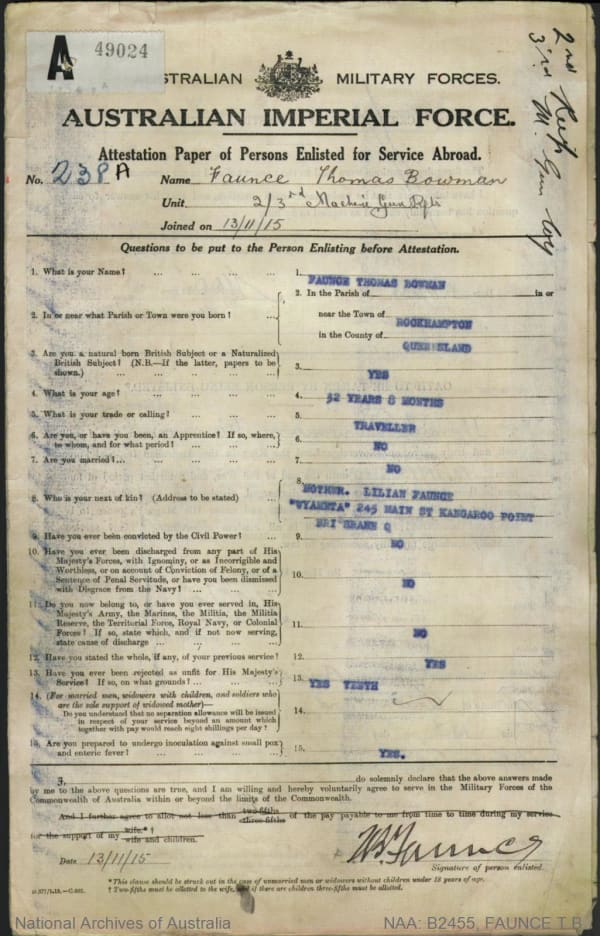 A 49024
AUSTRALIAN MILITARY FORCES.
AUSTRALIAN IMPERIAL FORCE.
2nd Reif
3rd M. Gun Coy
Attestation Paper of Persons Enlisted for Service Abroad.
No. 238A Name Faunce Thomas Bowman
Unit 2/3rd Machine Gun Rfts
Joined on 13/11/15
Questions to be put to the Person Enlisting before Attestation.
1. What is your Name? ... ... ... ... 1. FAUNCE THOMAS BOWMAN
2. In or near what Parish or Town were you born? ... 2. In the Parish of in or
near the Town of ROCKHAMPTON
in the County of QUEENSLAND
3. Are you a natural born British Subject or a Naturalized
British Subject? (N.B.—If the latter, papers to be
shown.) ... ... ... ... 3. YES
4. What is your age? ... ... ... ... 4. 32 YEARS 8 MONTHS
5. What is your trade or calling? ... ... ... 5. TRAVELLER
6. Are you, or have you been, an Apprentice? If so, where,
to whom, and for what period? ... ... ... 6. NO
7. Are you married?... ... ... ... 7. NO
8. Who is your next of kin? (Address to be stated) ... 8. MOTHER. LILIAN FAUNCE
245 MAIN ST KANGAROO POINT
BRISBANE Q
9. Have you ever been convicted by the Civil Power? ... 9. NO
10. Have you ever been discharged from any part of His
Majesty's Forces, with Ignominy, or as Incorrigible and
Worthless, or on account of Conviction of Felony, or of a
Sentence of Penal Servitude, or have you been dismissed
with Disgrace from the Navy? ... ... ... 10. NO
11. Do you now belong to, or have you ever served in, His
Majesty's Army, the Marines, the Militia, the Militia
Reserve, the Territorial Force, Royal Navy, or Colonial
Forces? If so, state which, and if not now serving,
state cause of discharge ... ... ... 11. NO
12. Have you stated the whole, if any, of your previous service? 12. YES
13. Have you ever been rejected as unfit for His Majesty's
Service? If so, on what grounds? ... ... ... 13. YES TEETH
14. (For married men, widowers with children, and soldiers who
are the sole support of widowed mother)—
Do you understand that no separation allowance will be issued
in respect of your service beyond an amount which
together with pay would reach eight shillings per day? 14.
15. Are you prepared to undergo inoculation against small pox
and enteric fever? ... ... ... ... 15. YES.
I, do solemnly declare that the above answers made
by me to the above questions are true, and I am willing and hereby voluntarily agree to serve in the Military Forces of the
Commonwealth of Australia within or beyond the limits of the Commonwealth.
And I further agree to allot not less than two-fifths three-fifths of the pay payable to me from time to time during my service
for the support of my wife.*† wife and children.
Date 13/11/15 T B Faunce
Signature of person enlisted.
*This clause should be struck out in the case of unmarried men or widowers without children under 18 years of age.
† Two-fifths must be allotted to the wife, and if there are children three-fifths must be allotted.
National Archives of Australia NAA: B2455, FAUNCE T B